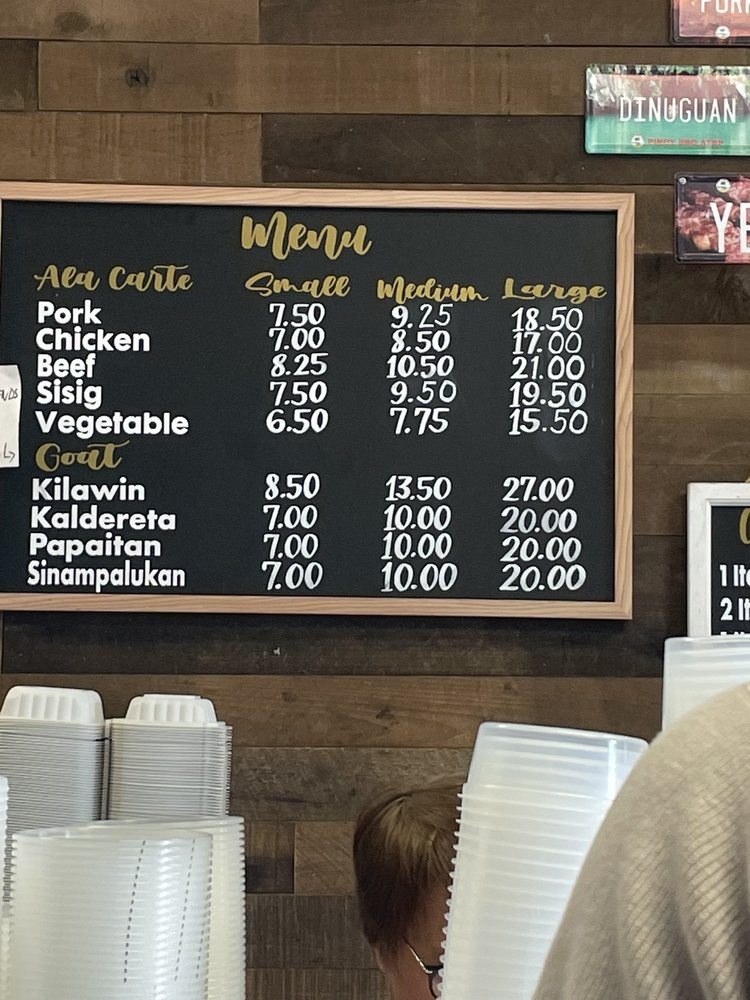 PORK
DINUGUAN
PINOY BBQ ATBP
YE
Menu
Ala Carte Small Medium Large
Pork 7.50 9.25 18.50
Chicken 7.00 8.50 17.00
Beef 8.25 10.50 21.00
Sisig 7.50 9.50 19.50
Vegetable 6.50 7.75 15.50
Goat
Kilawin 8.50 13.50 27.00
Kaldereta 7.00 10.00 20.00
Papaitan 7.00 10.00 20.00
Sinampalukan 7.00 10.00 20.00
1 It
2 It